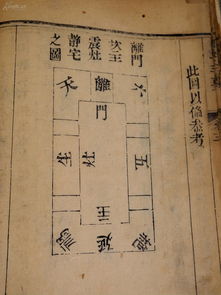 此圖以偹叅考
離門
坎主
震灶
静宅
之圖
六
離
天
門
五
灶
生
主
絶
延
禍